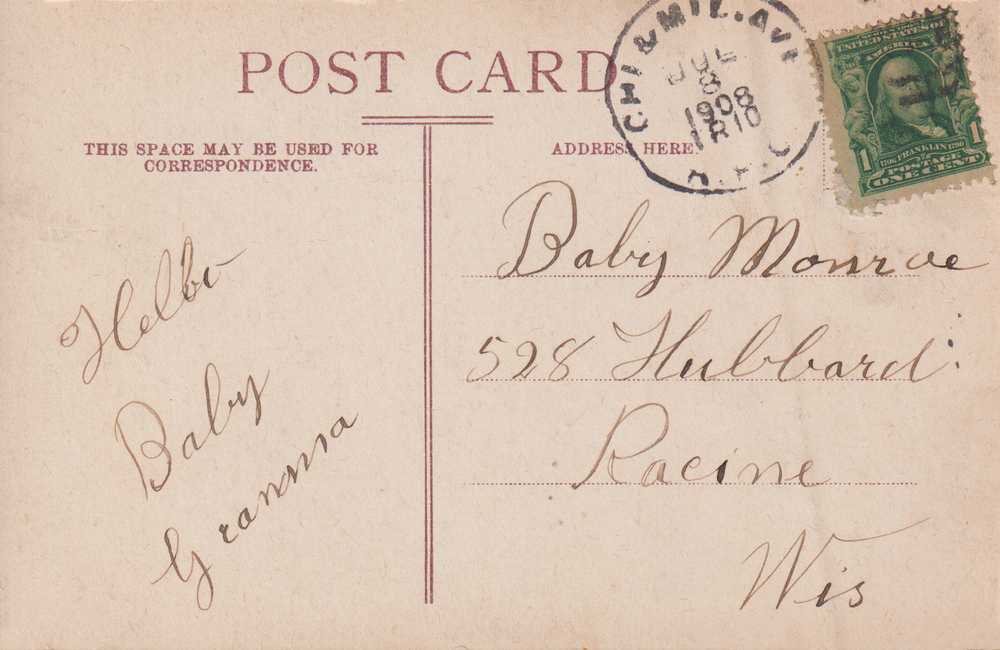 POST CARD
THIS SPACE MAY BE USED FOR
CORRESPONDENCE.
ADDRESS HERE.
CHI & MIL. AVE
JUL
8
1908
R.P.O
UNITED STATES OF
AMERICA
1706 FRANKLIN 1790
POSTAGE
1 ONE CENT 1
Hello
Baby
Granma
Baby Monroe
528 Hubbard.
Racine
Wis